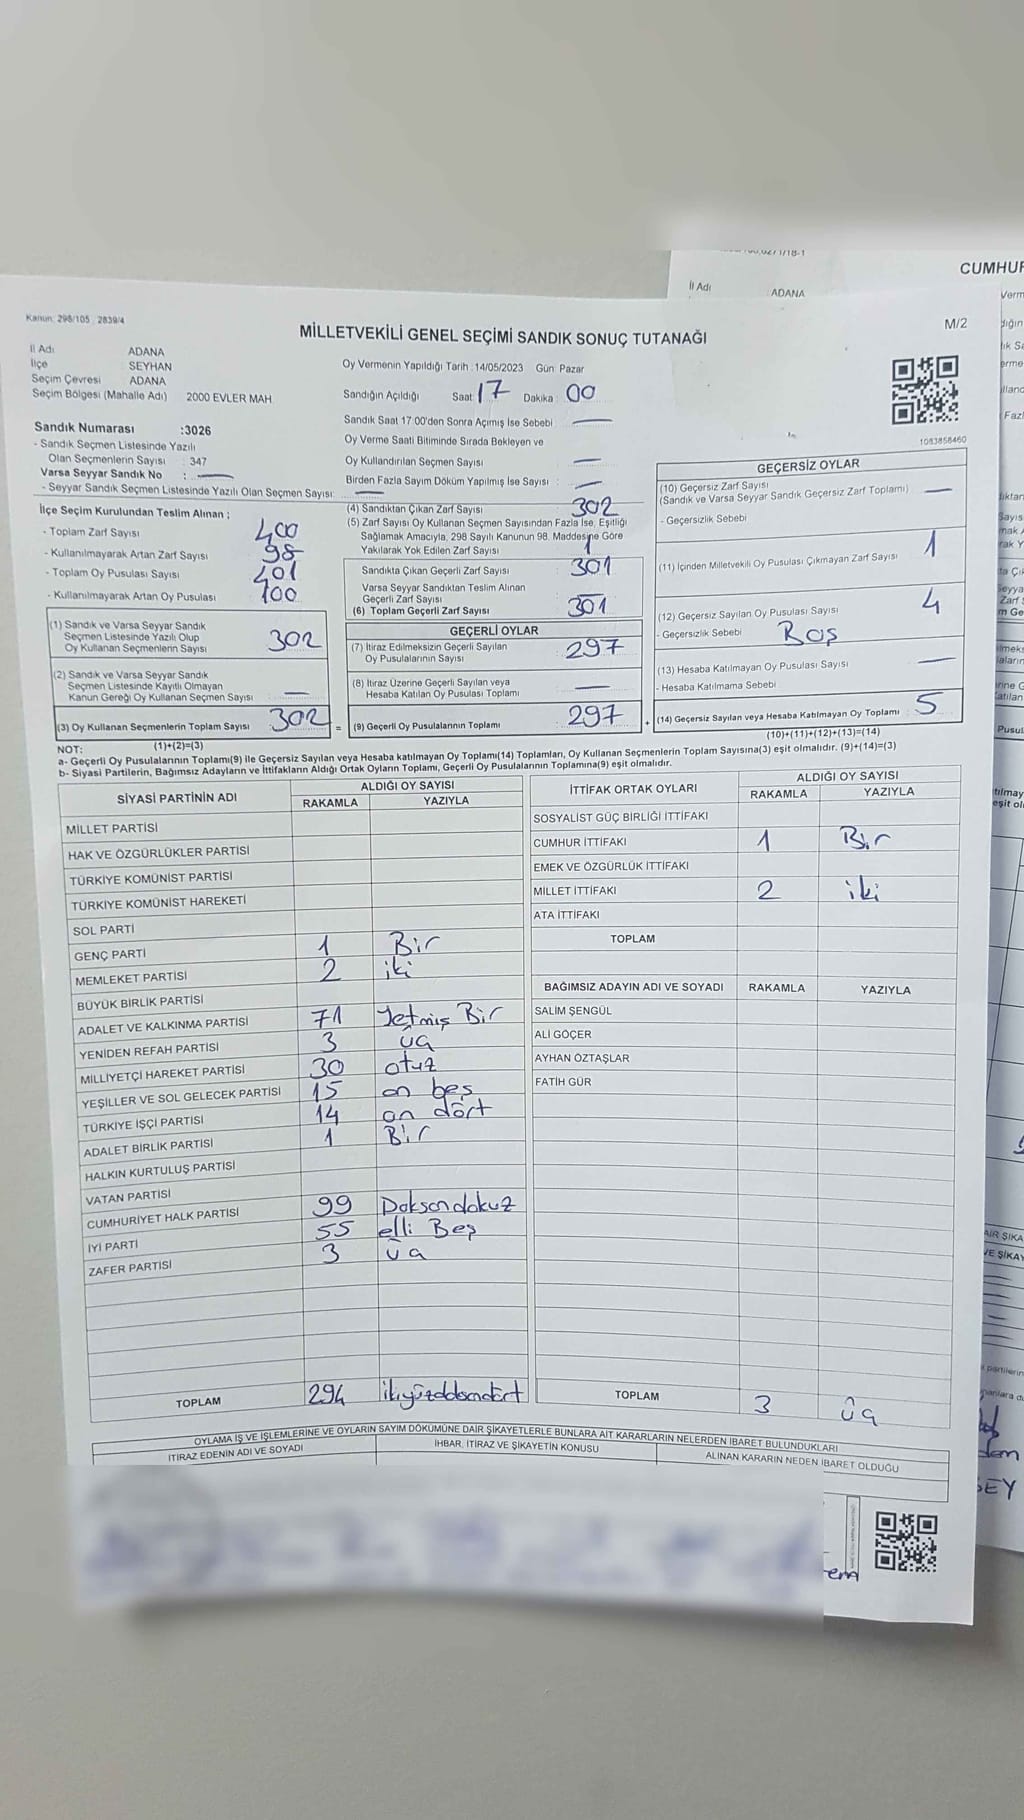 Kanun: 298/105 2839/4
MİLLETVEKİLİ GENEL SEÇİMİ SANDIK SONUÇ TUTANAĞI
M/2
İl Adı ADANA
İlçe SEYHAN
Seçim Çevresi ADANA
Seçim Bölgesi (Mahalle Adı) 2000 EVLER MAH
Sandık Numarası :3026
- Sandık Seçmen Listesinde Yazılı
Olan Seçmenlerin Sayısı : 347
Varsa Seyyar Sandık No : —
- Seyyar Sandık Seçmen Listesinde Yazılı Olan Seçmen Sayısı: —
Oy Vermenin Yapıldığı Tarih : 14/05/2023 Gün: Pazar
Sandığın Açıldığı Saat : 17 Dakika : 00
Sandık Saat 17:00'den Sonra Açımış İse Sebebi : —
Oy Verme Saati Bitiminde Sırada Bekleyen ve
Oy Kullandırılan Seçmen Sayısı : —
Birden Fazla Sayım Döküm Yapılmış İse Sayısı : —
1083858460
İlçe Seçim Kurulundan Teslim Alınan ;
- Toplam Zarf Sayısı : 400
- Kullanılmayarak Artan Zarf Sayısı : 98
- Toplam Oy Pusulası Sayısı : 401
- Kullanılmayarak Artan Oy Pusulası : 100
(1) Sandık ve Varsa Seyyar Sandık
Seçmen Listesinde Yazılı Olup
Oy Kullanan Seçmenlerin Sayısı : 302
(2) Sandık ve Varsa Seyyar Sandık
Seçmen Listesinde Kayıtlı Olmayan
Kanun Gereği Oy Kullanan Seçmen Sayısı : —
(3) Oy Kullanan Seçmenlerin Toplam Sayısı : 302
(1)+(2)=(3)
(4) Sandıktan Çıkan Zarf Sayısı : 302
(5) Zarf Sayısı Oy Kullanan Seçmen Sayısından Fazla İse, Eşitliği
Sağlamak Amacıyla, 298 Sayılı Kanunun 98. Maddesine Göre
Yakılarak Yok Edilen Zarf Sayısı : 1
Sandıkta Çıkan Geçerli Zarf Sayısı : 301
Varsa Seyyar Sandıktan Teslim Alınan
Geçerli Zarf Sayısı : —
(6) Toplam Geçerli Zarf Sayısı : 301
GEÇERLİ OYLAR
(7) İtiraz Edilmeksizin Geçerli Sayılan
Oy Pusulalarının Sayısı : 297
(8) İtiraz Üzerine Geçerli Sayılan veya
Hesaba Katılan Oy Pusulası Toplamı : —
= (9) Geçerli Oy Pusulalarının Toplamı : 297
GEÇERSİZ OYLAR
(10) Geçersiz Zarf Sayısı
(Sandık ve Varsa Seyyar Sandık Geçersiz Zarf Toplamı) : —
- Geçersizlik Sebebi
(11) İçinden Milletvekili Oy Pusulası Çıkmayan Zarf Sayısı : 1
(12) Geçersiz Sayılan Oy Pusulası Sayısı : 4
- Geçersizlik Sebebi Boş
(13) Hesaba Katılmayan Oy Pusulası Sayısı : —
- Hesaba Katılmama Sebebi
+ (14) Geçersiz Sayılan veya Hesaba Katılmayan Oy Toplamı : 5
(10)+(11)+(12)+(13)=(14)
NOT:
a- Geçerli Oy Pusulalarının Toplamı(9) ile Geçersiz Sayılan veya Hesaba katılmayan Oy Toplamı(14) Toplamları, Oy Kullanan Seçmenlerin Toplam Sayısına(3) eşit olmalıdır. (9)+(14)=(3)
b- Siyasi Partilerin, Bağımsız Adayların ve İttifakların Aldığı Ortak Oyların Toplamı, Geçerli Oy Pusulalarının Toplamına(9) eşit olmalıdır.
SİYASİ PARTİNİN ADI ALDIĞI OY SAYISI
RAKAMLA YAZIYLA
MİLLET PARTİSİ
HAK VE ÖZGÜRLÜKLER PARTİSİ
TÜRKİYE KOMÜNİST PARTİSİ
TÜRKİYE KOMÜNİST HAREKETİ
SOL PARTİ
GENÇ PARTİ 1 Bir
MEMLEKET PARTİSİ 2 iki
BÜYÜK BİRLİK PARTİSİ
ADALET VE KALKINMA PARTİSİ 71 Yetmiş Bir
YENİDEN REFAH PARTİSİ 3 üç
MİLLİYETÇİ HAREKET PARTİSİ 30 otuz
YEŞİLLER VE SOL GELECEK PARTİSİ 15 on beş
TÜRKİYE İŞÇİ PARTİSİ 14 on dört
ADALET BİRLİK PARTİSİ 1 Bir
HALKIN KURTULUŞ PARTİSİ
VATAN PARTİSİ
CUMHURİYET HALK PARTİSİ 99 Doksandokuz
İYİ PARTİ 55 elli Beş
ZAFER PARTİSİ 3 üç
TOPLAM 294 ikiyüzdoksandört
İTTİFAK ORTAK OYLARI ALDIĞI OY SAYISI
RAKAMLA YAZIYLA
SOSYALİST GÜÇ BİRLİĞİ İTTİFAKI
CUMHUR İTTİFAKI 1 Bir
EMEK VE ÖZGÜRLÜK İTTİFAKI
MİLLET İTTİFAKI 2 iki
ATA İTTİFAKI
TOPLAM
BAĞIMSIZ ADAYIN ADI VE SOYADI RAKAMLA YAZIYLA
SALİM ŞENGÜL
ALİ GÖÇER
AYHAN ÖZTAŞLAR
FATİH GÜR
TOPLAM 3 üç
OYLAMA İŞ VE İŞLEMLERİNE VE OYLARIN SAYIM DÖKÜMÜNE DAİR ŞİKAYETLERLE BUNLARA AİT KARARLARIN NELERDEN İBARET BULUNDUKLARI
İTİRAZ EDENİN ADI VE SOYADI İHBAR, İTİRAZ VE ŞİKAYETİN KONUSU ALINAN KARARIN NEDEN İBARET OLDUĞU
İl Adı ADANA
CUMHUR